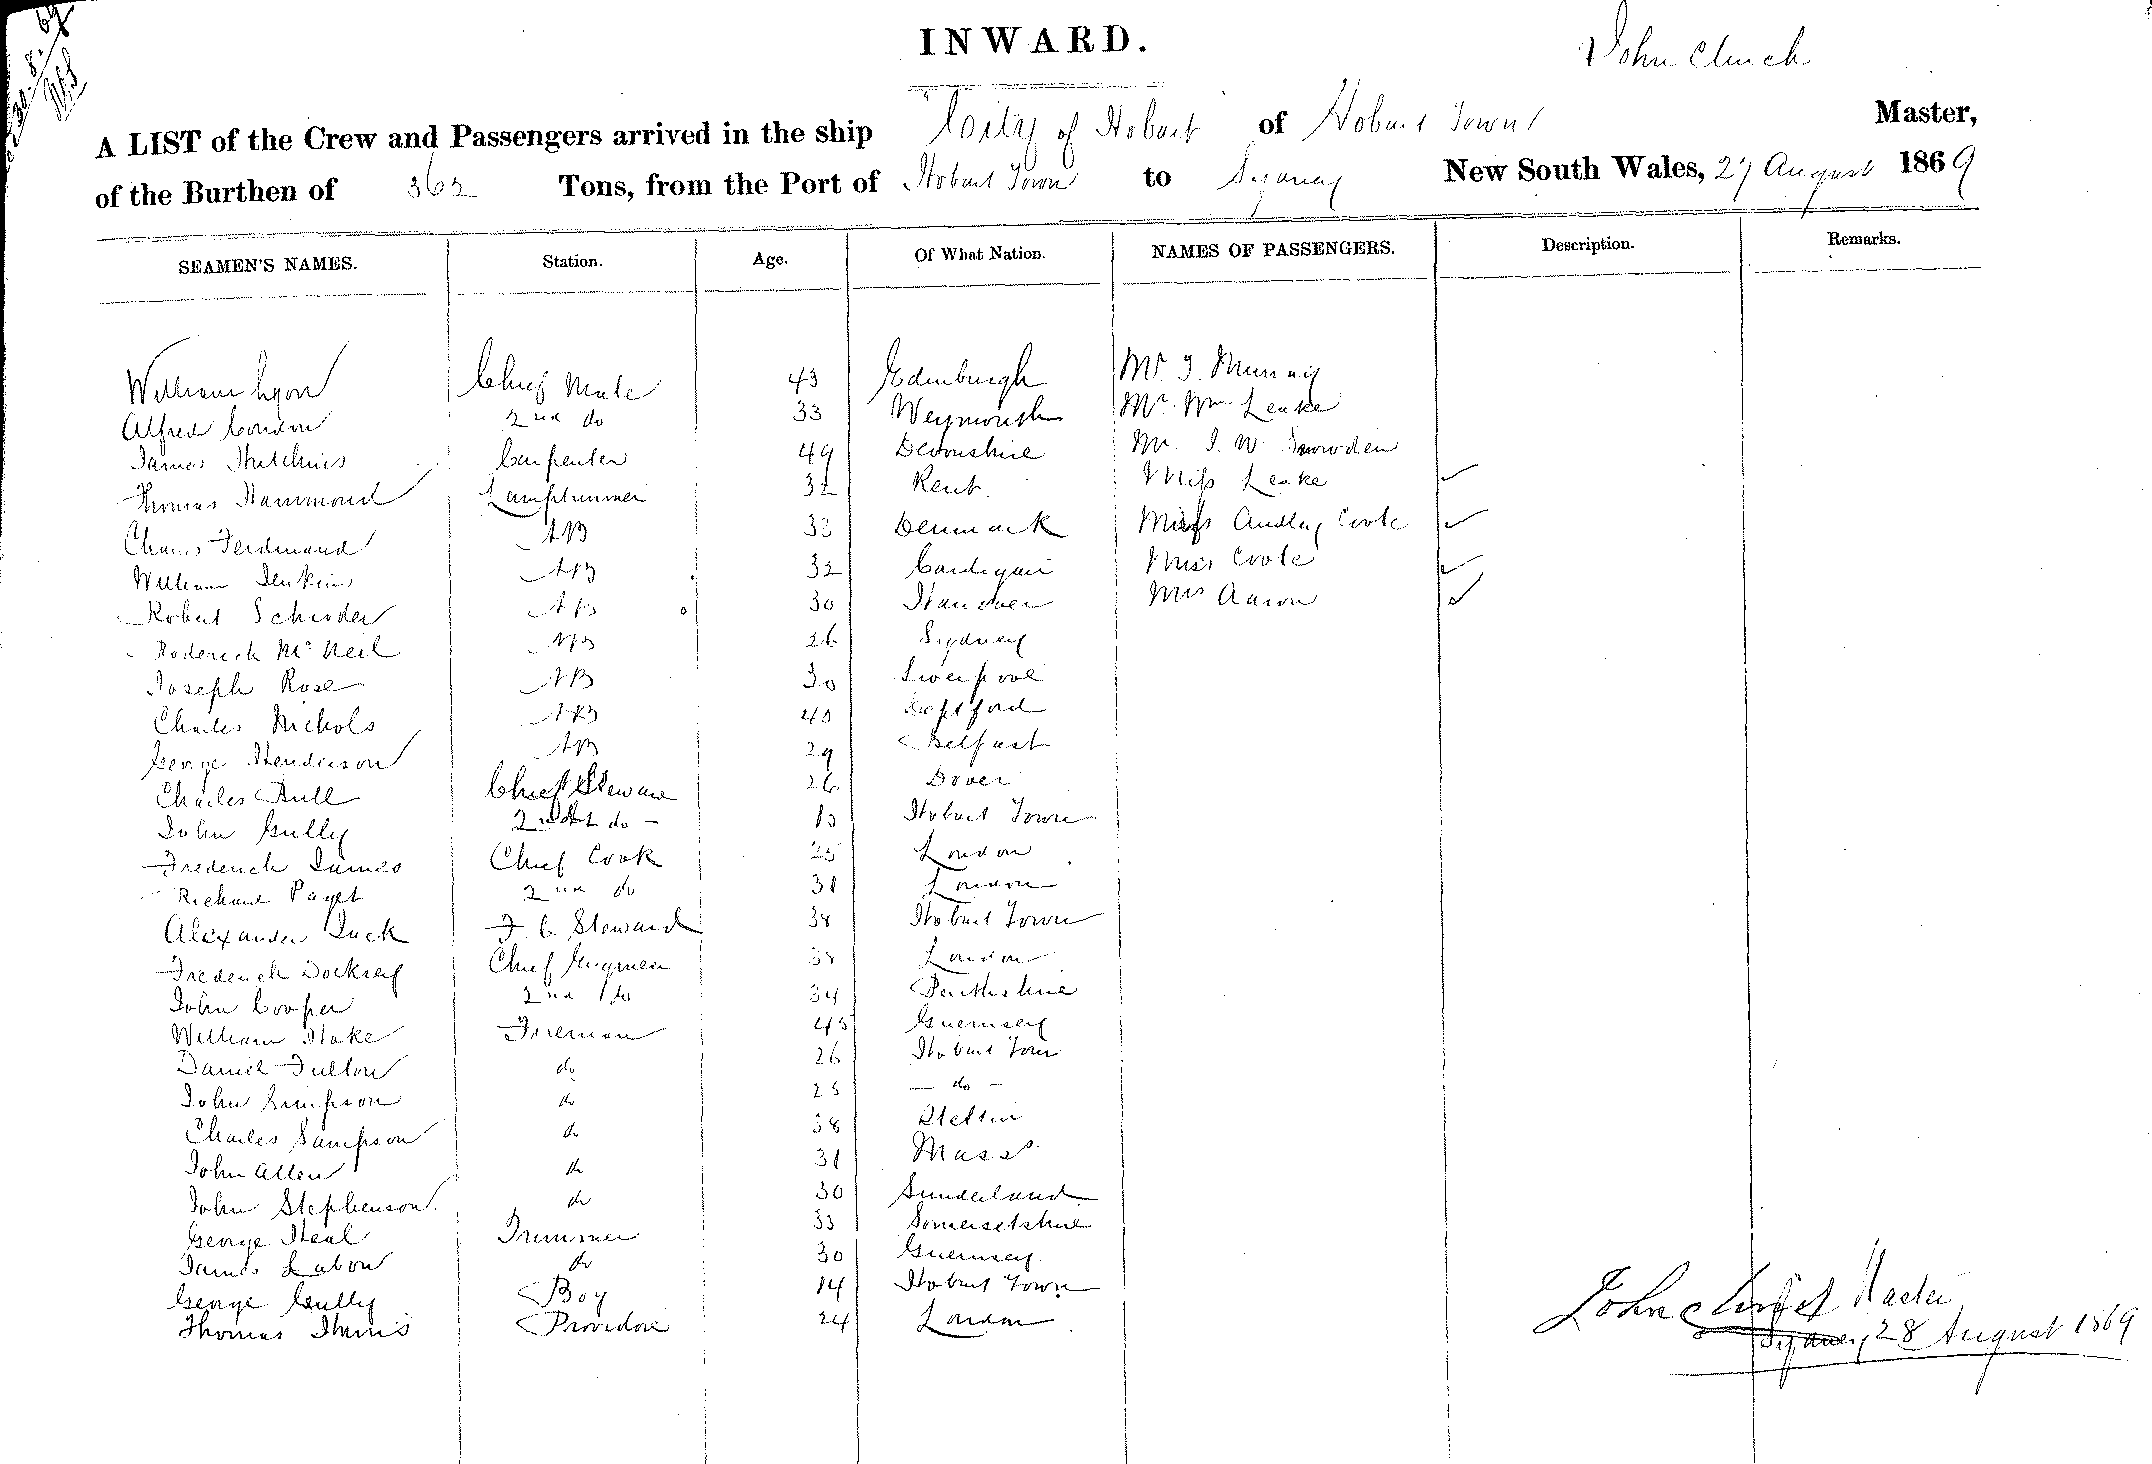 INWARD.
John Clinch
A LIST of the Crew and Passengers arrived in the ship "City of Hobart of Hobart Town Master,
of the Burthen of 363 Tons, from the Port of Hobart Town to Sydney New South Wales, 27 August 1869
SEAMEN'S NAMES. Station. Age. Of What Nation. NAMES OF PASSENGERS. Description. Remarks.
William Lyon Chief Mate 43 Edinburgh Mr. J. Murray
Alfred Condon 2nd do 33 Weymouth Mr. Wm Leake
James Hutchins Carpenter 49 Devonshire Mr. J. W. Snowden
Thomas Hammond Lamptrimmer 32 Kent Miss Leake
Charles Ferdinand AB 33 Denmark Miss Audley Coote
William Jenkins AB 32 Cardigan Miss Coote
Robert Schroder AB 30 Hanover Mrs Aaron
Roderick McNeil AB 26 Sydney
Joseph Rose AB 30 Liverpool
Charles Nichols AB 40 Deptford
George Henderson AB 29 Belfast
Charles Bull Chief Steward 26 Dover
John Gully 2nd do Hobart Town
Frederick James Chief Cook 25 London
Richard Paget 2nd do 31 London
Alexander Duck F. C. Steward 38 Hobart Town
Frederick Dockrey Chief Engineer 38 London
John Cooper 2nd do 34 Perthshire
William Hake Fireman 45 Guernsey
Daniel Fulton do 26 Hobart Town
John Simpson do 25 - do -
Charles Sampson do 38 Stettin
John Allen do 31 Mass
John Stephenson do 30 Sunderland
George Heal Trimmer 33 Somersetshire
James Labon do 30 Guernsey
George Gully Boy 14 Hobart Town
Thomas Harris Providore 24 London
John Clinch Master
Sydney 28 August 1869